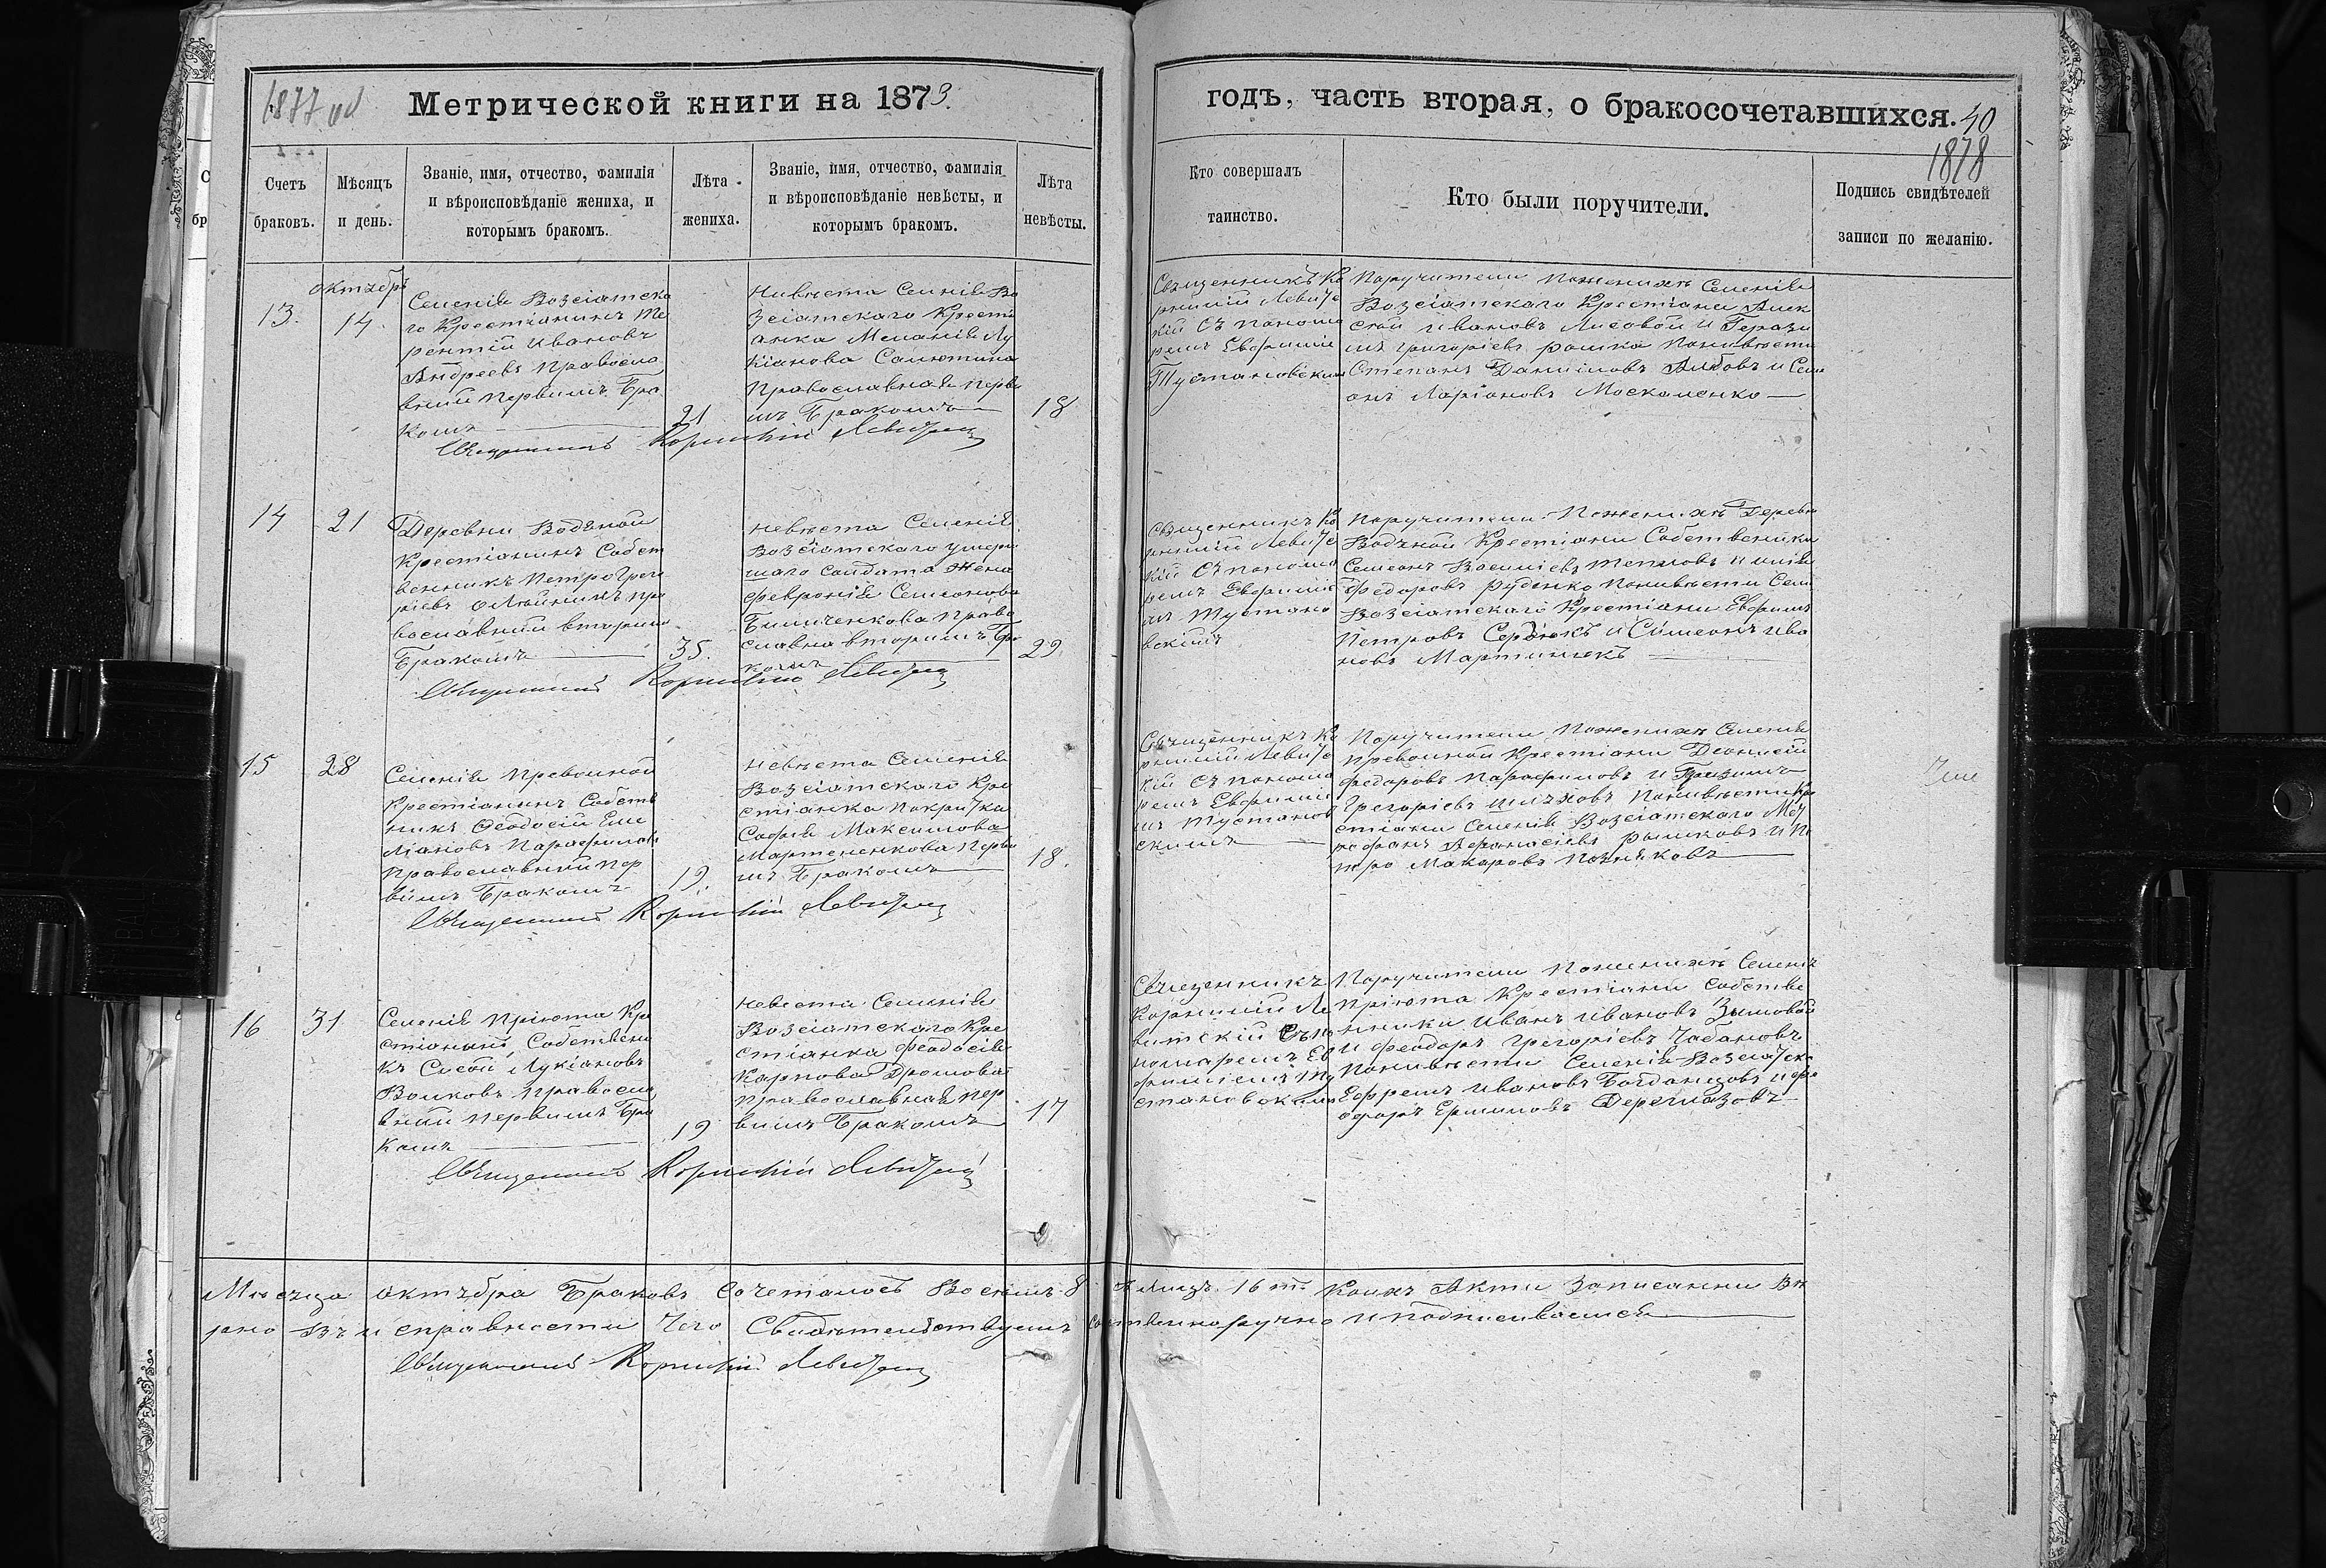 Метрической книги на 1873.
годъ, часть вторая, о бракосочетавшихся. 40
1878
Счетъ
браковъ.
Мѣсяцъ
и день.
Званіе, имя, отчество, фамилія
и вѣроисповѣданіе жениха, и
которымъ бракомъ.
Лѣта
жениха.
Званіе, имя, отчество, фамилія
и вѣроисповѣданіе невѣсты, и
которымъ бракомъ.
Лѣта
невѣсты.
Кто совершалъ
таинство.
Кто были поручители.
Подпись свидѣтелей
записи по желанію.
13.
октябрь
14.
Селенія Возсіатска
го Крестіанинъ Те
рентій Ивановъ
Андреевъ Правосла
вній Первимъ Бра
комъ
21
Нивѣста Селнія Во
зсіатскаго Крести
анка Меланія Лу
кіанова Салютина
Православная Перви
мъ Бракомъ
18
Священникъ Ко
рнилій Левитс
кій Съ понома
ремъ Евфиміе
Тустановским
Поручители Поженихѣ Селенія
Возсіатскаго Крестіани Алек
сѣй Ивановъ Лисовой и Герази
мъ Григоріевъ рошка Понивѣсти
Степанъ Даниловъ и Сем
онъ Ларіоновъ Москаленко
Священникъ Корнилій Левитскій
14
21
Деревни Водяной
Крестіанинъ Собст
венникъ Петро Григо
ріевъ Олѣйникъ пра
вославній вторим
Бракомъ
35.
невѣста Селенія
Возсіатскаго умер
шаго Солдата Жена
Февронія Семіонова
Биличенкова Право
славна вторимъ Бра
комъ
29
Священникъ Ко
рнилій Левитс
кій Съ понома
ремъ Евфиміе
мъ Тустано
вскімъ
Поручители Поженихѣ Деревни
Водяной Крестіани Собственики
Семіонъ Василіевъ Тепловъ и
Федоровъ Руденко Понивѣсти Селн
Возсіатскаго Крестіани Евфимъ
Петровъ Сердюкъ и Симеонъ Ива
новъ Мартинюкъ
Священникъ Корнилій Левитскій
15
28
Селенія Привольной
Крестіанинъ Собств
никъ Феодосій Еме
ліановъ Парафилов
Православній пер
вимъ Бракомъ
19.
Невѣста Селенія
Возсіатскаго Кре
стіанка покритка
Софія Максимова
Мартененкова Перви
мъ Бракомъ
18.
Священникъ Ко
рнилій Левитс
кій Съ понома
ремъ Евфиміе
мъ Тустанов
скимъ
Поручители Поженихѣ Селенія
Привольной Крестіани Деонисій
Федоровъ Парафиловъ и
Грегоріевъ Понивѣсти Кре
стіани Селенія Возсіатскаго Мет
рофанъ Афанасіевъ и Пе
тро Макаровъ
Священникъ Корнилій Левитскій
16
31
Селенія Пріюта Кре
стіанинъ Собственн
къ Сисой Лукіановъ
Волковъ Правосла
вній Первимъ Бра
комъ
19
Невѣста Селенія
Возсіатскаго Кре
стіанка Феодосія
Карпова Громова
Православная Пер
вимъ Бракомъ
17
Священникъ
Корнилій Ле
витскій Съ по
номаремъ Ев
фиміемъ Ту
становскимъ
Поручители Поженихѣ Селенія
Пріюта Крестіани Собстве
нники Иванъ Ивановъ Зимовой
и Феодоръ Григоріевъ Чабановъ
Понивѣсти Селенія Возсіатска
Ефремъ Ивановъ Богдановъ и Фе
одоръ Ермиловъ Дереглазовъ
Священникъ Корнилій Левитскій
Мѣсяца октября Браковъ Сочеталось Восемъ 8 16ть Коихъ Акти Записанни Вѣ
рно Въ исправности Чего Свидѣтелствуемъ Собственноручно и подписиваемся
Священникъ Корнилій Левитскій